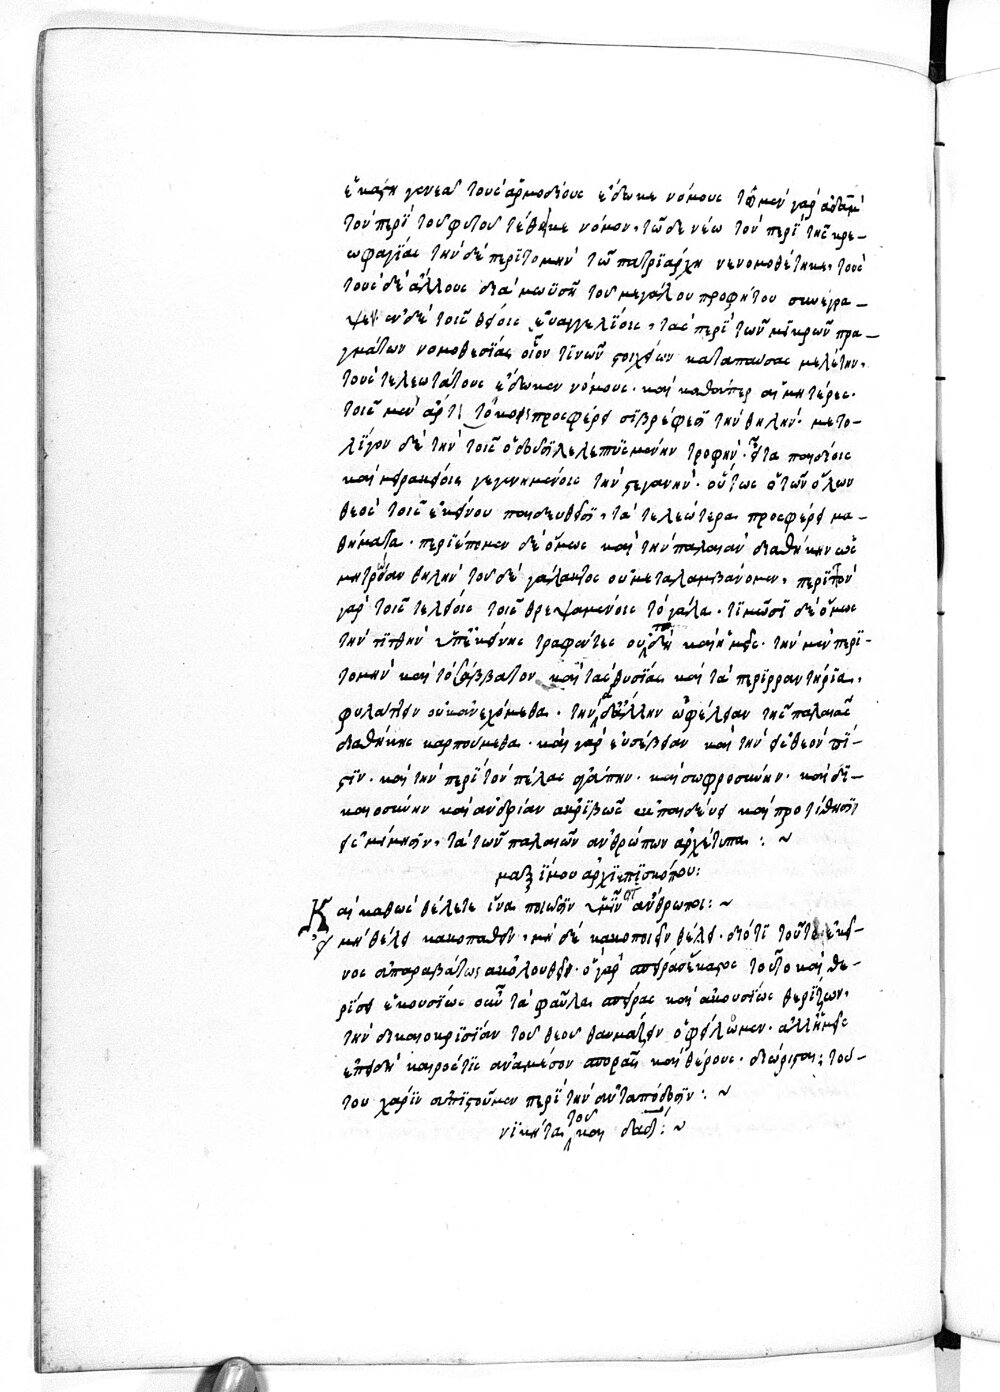 ἑκάστη γενεᾷ τοὺς ἁρμοδίους ἔδωκε νόμους τῶ μὲν γὰρ ἀδὰμ
τὸν περὶ τοῦ φυτοῦ τέθεικε νόμον, τῶ δὲ νῶε τὸν περὶ τῆς κρε-
ωφαγίας τὴν δὲ περιτομὴν τῶ πατριάρχη νενομοθέτηκε, τοὺς
τοὺς δὲ ἄλλους διὰ μωϋσῆ τοῦ μεγάλου προφήτου συνέγρα-
ψεν ἐν δὲ τοῖς θείοις εὐαγγελίοις, τὰς περὶ τῶν μικρῶν πρα-
γμάτων νομοθεσίας οἷον τινῶν στοιχείων καταπαύσας μελέτην,
τοὺς τελεωτάτους ἔδωκεν νόμους. καὶ καθάπερ αἱ μητέρες.
τοῖς μὲν ἄρτι προσφέρει βρέφεσι τὴν θηλήν. μετο-
λίγον δὲ τὴν τροφήν. εἶτα παιδίοις
καὶ μειρακίοις γεγενημένοις τὴν στεγανήν. οὕτως ὁ τῶν ὅλων
θεὸς τοῖς ἐκείνου παιδευθεῖσι, τὰ τελεώτερα προσφέρει μα-
θήματα. περιέπομεν δὲ ὅμως καὶ τὴν παλαιὰν διαθήκην ὡς
μητρώαν θηλὴν τοῦ δὲ γάλακτος οὐ μεταλαμβάνομεν, περιττὸν
γὰρ τοῖς τελείοις τοῖς θρεψαμένοις τὸ γάλα. τιμῶσι δὲ ὅμως
τὴν τίτθην ὑπ' ἐκείνης τραφέντες οὕτω δὴ καὶ ἡμεῖς. τὴν μὲν περι-
τομὴν καὶ τὸ σάββατον καὶ τὰς θυσίας καὶ τὰ περιρραντήρια,
φυλάττειν οὐκ ἀνεχόμεθα. τὴν δὲ ἄλλην ὠφέλειαν τῆς παλαιᾶς
διαθήκης καρπούμεθα. καὶ γὰρ εὐσέβειαν καὶ τὴν εἰς θεὸν πί-
στιν. καὶ τὴν περὶ τὸν πέλας ἀγάπην. καὶ σωφροσύνην. καὶ δι-
καιοσύνην καὶ ἀνδρίαν ἀκριβῶς ἐκπαιδεύει καὶ προτίθησι
εἰς μίμησιν, τὰ τῶν παλαιῶν ἀνθρώπων ἀρχέτυπα : ~
μαξίμου ἀρχιεπισκόπου:
Καὶ καθὼς θέλετε ἵνα ποιῶσιν ὑμῖν οἱ ἄνθρωποι: ~
μὴ θέλει κακοπαθεῖν, μὴ δὲ κακοποιεῖν θέλει. διότι τοῦτο ἐκεῖ-
νος ἀπαραβάτως ἀκόλουθει. ὃ γὰρ σπείρει ἕκαστος τοῦτο καὶ θε-
ρίσει ἑκουσίως οὖν τὰ φαῦλα σπείρας καὶ ἀκουσίως θερίζων,
τὴν δικαιοκρισίαν τοῦ θεοῦ θαυμάζειν ὀφείλομεν. ἀλλ' ἡμεῖς
ἐπειδὴ καιρὸς τις ἀνάμεσον σπορᾶς καὶ θέρους. διώρισται, τού-
του χάριν ἀπιστοῦμεν περὶ τὴν ἀνταπόδοσιν: ~
νικήτα τοῦ καὶ δαδ: ~